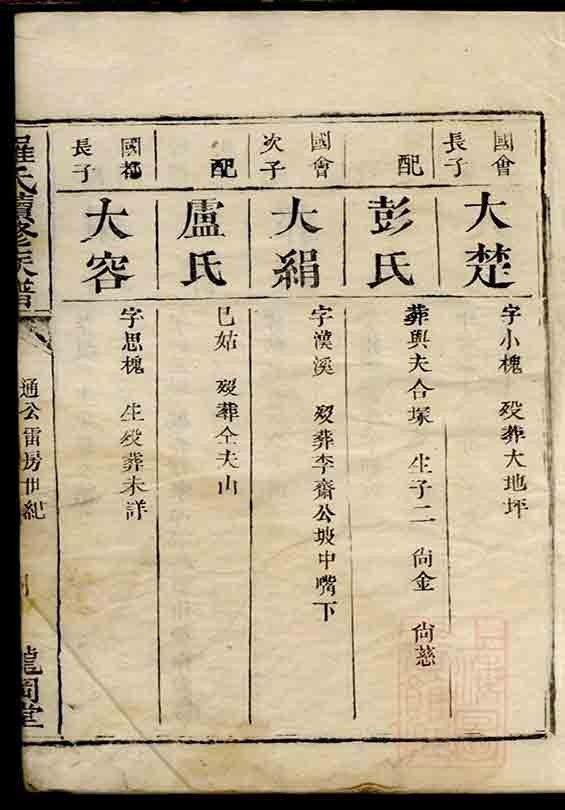 國會
長子
大楚
字小槐 歿葬大地坪
配
彭氏
葬與夫合塚 生子二 尙金 尙慈
國會
次子
大絹
字漢溪 歿葬李齋公坡中嘴下
配
盧氏
巳姑 歿葬仝夫山
國都
長子
大容
字思槐 生歿葬未詳
羅氏續修族譜
通公雷房世紀
龍岡堂